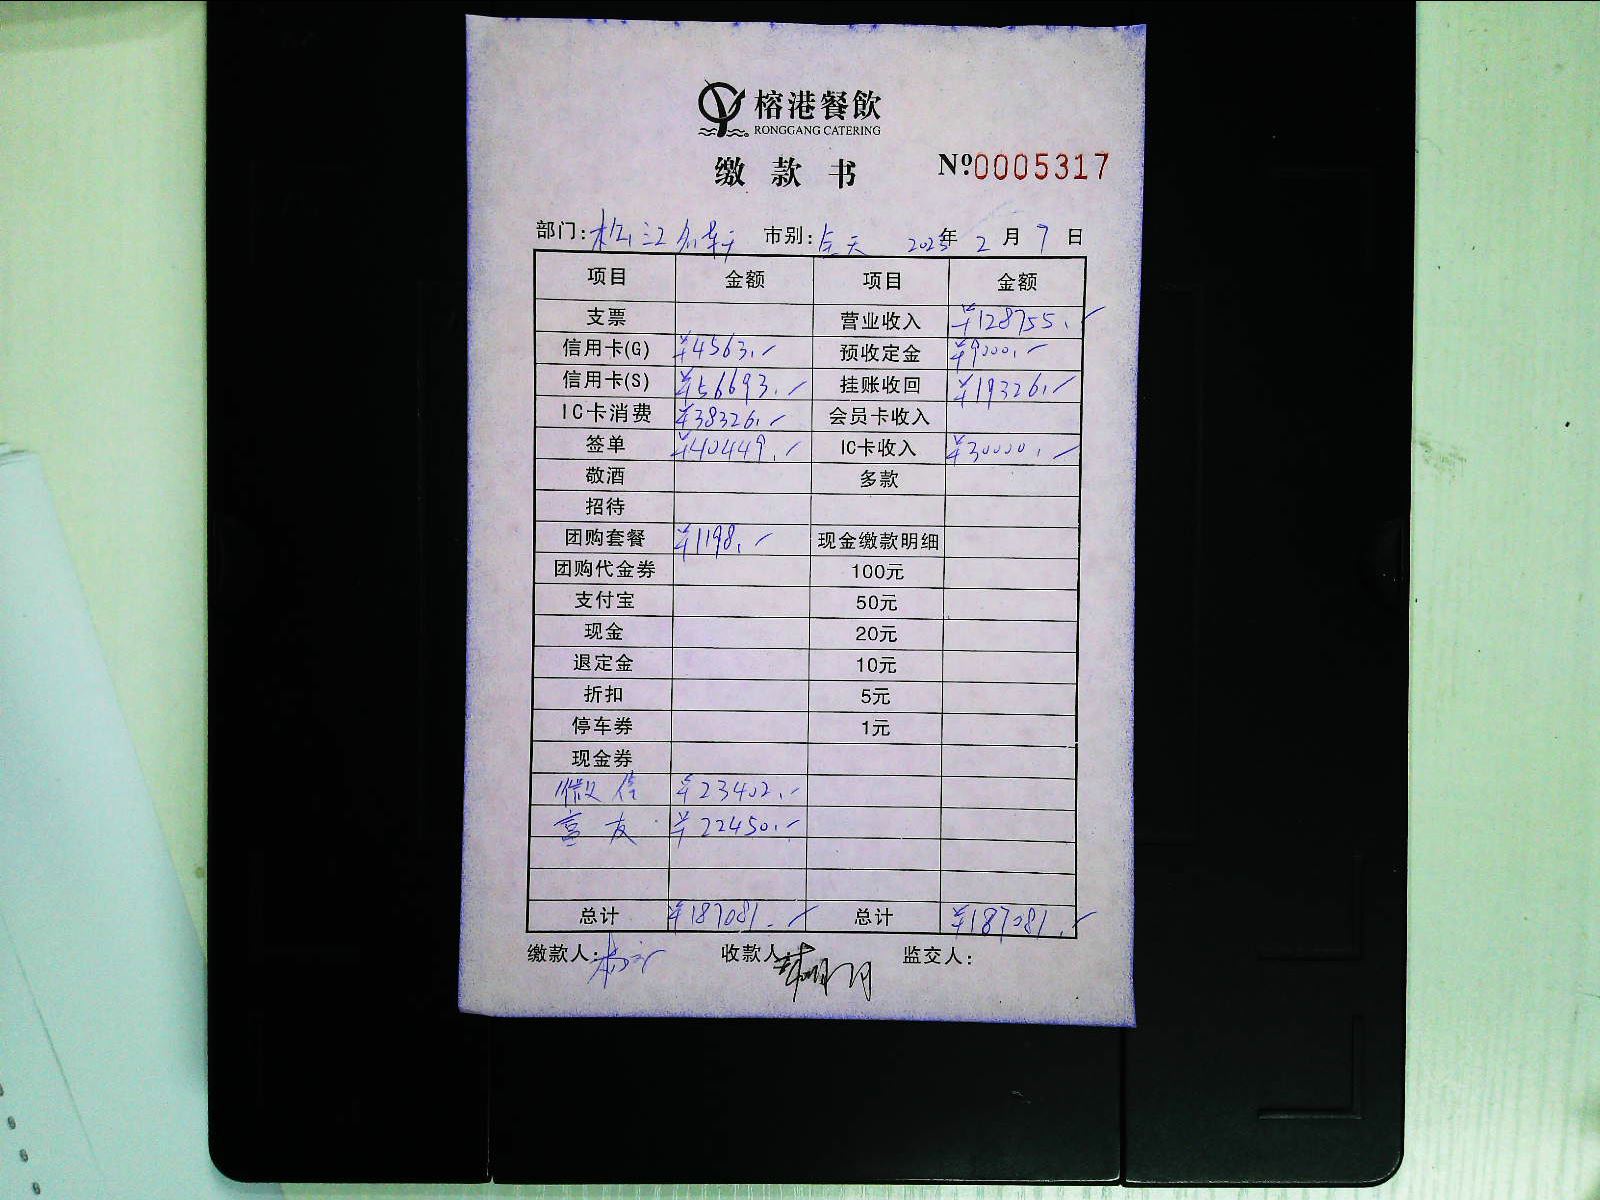 榕港餐飲
RONGGANG CATERING
缴款书 Nº:0005317
部门:松江 市别:全天 2025年2月7日
项目 金额 项目 金额
支票 营业收入 ¥128755.-
信用卡(G) ¥4563.- 预收定金 ¥9000.-
信用卡(S) ¥56693.- 挂账收回 ¥19326.-
IC卡消费 ¥38326.- 会员卡收入
签单 ¥40449.- IC卡收入 ¥30000.-
敬酒 多款
招待
团购套餐 ¥1198.- 现金缴款明细
团购代金券 100元
支付宝 50元
现金 20元
退定金 10元
折扣 5元
停车券 1元
现金券
微信 ¥23402.-
富友 ¥22450.-
总计 ¥187081.- 总计 ¥187081.-
缴款人: 收款人: 监交人: